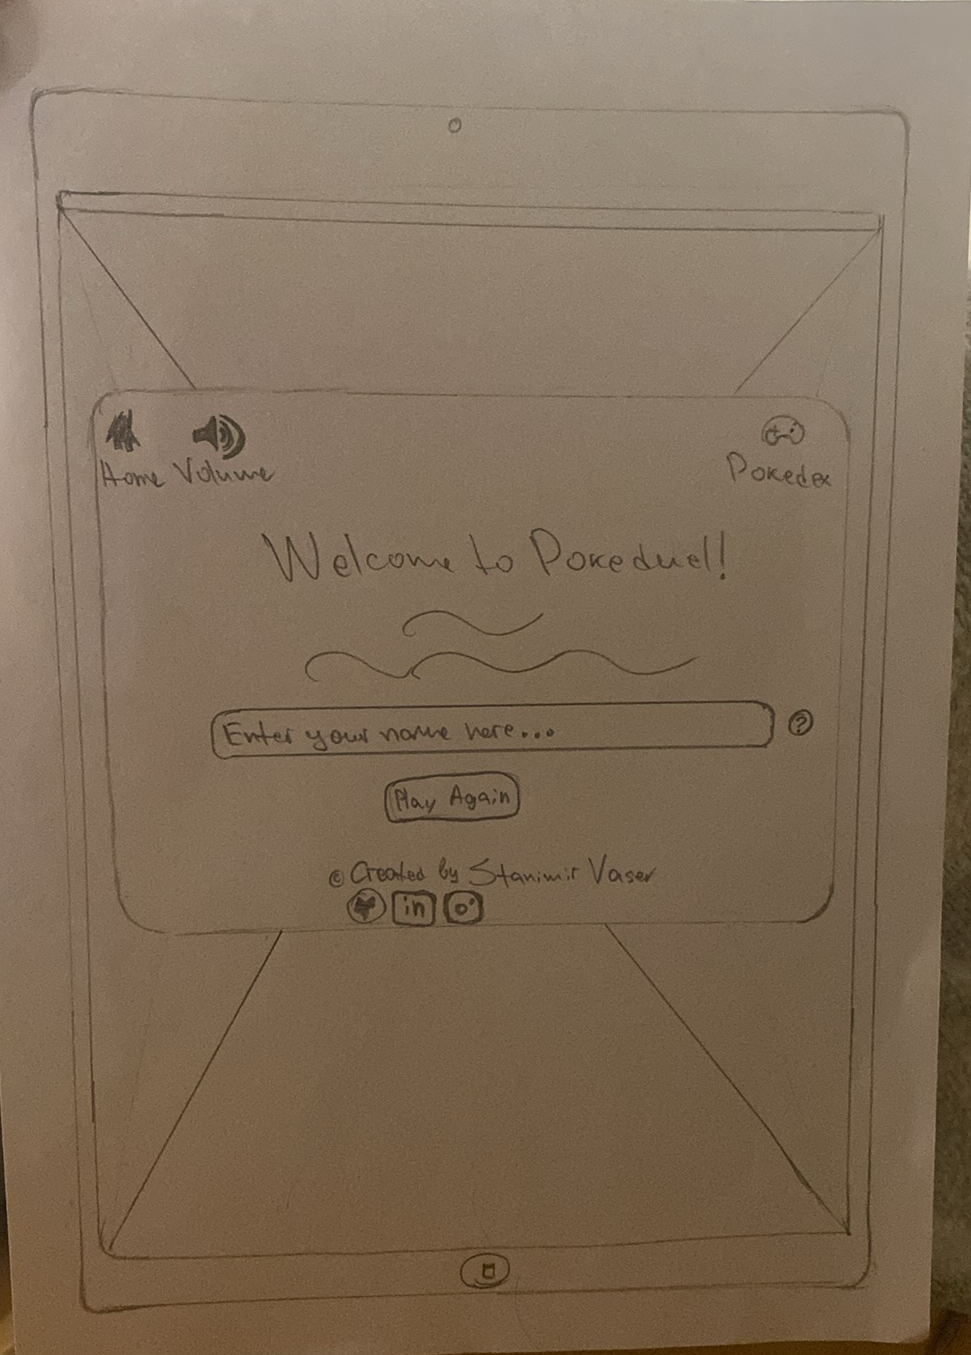 Home Volume
Pokedex
Welcome to Pokeduel!
Enter your name here...
?
Play Again
© Created by Stanimir Vaser
in